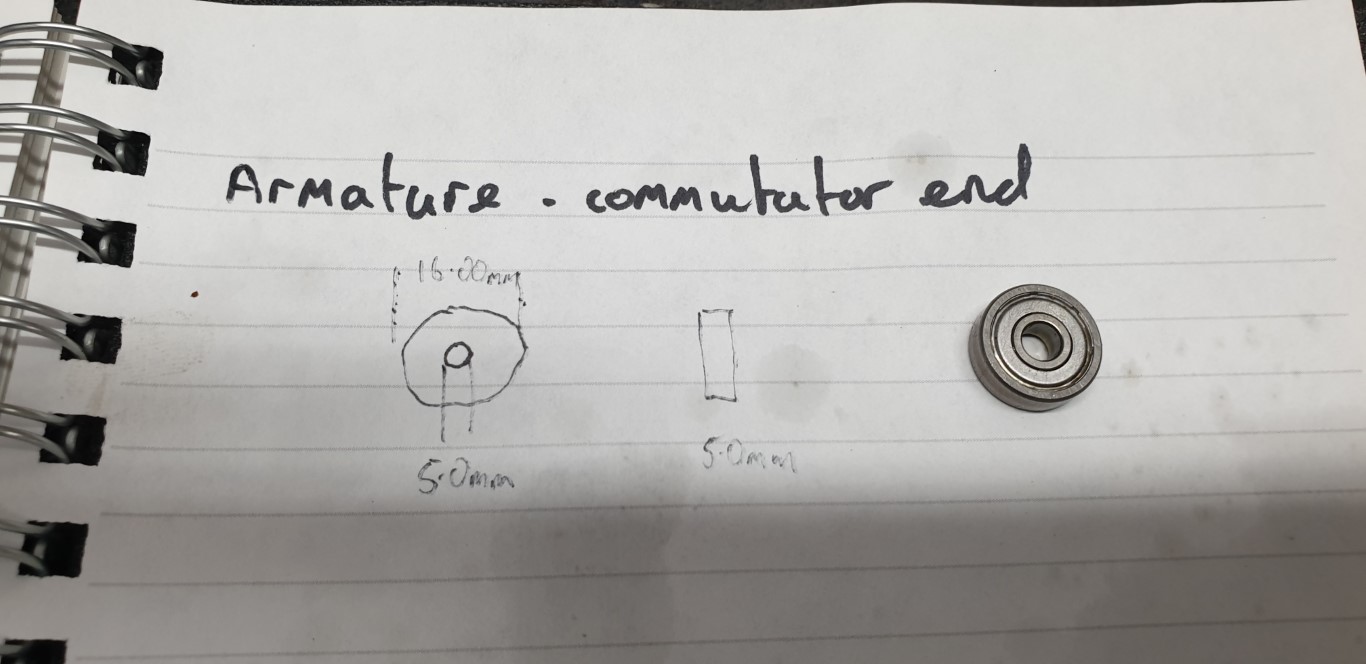 Armature . commutator end
16.00mm
5.0mm
5.0mm